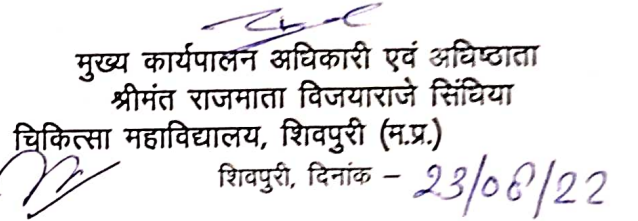 मुख्य कार्यपालन अधिकारी एवं अधिष्ठाता
श्रीमंत राजमाता विजयाराजे सिंधिया
चिकित्सा महाविद्यालय, शिवपुरी (म.प्र.)
शिवपुरी, दिनांक – 23/06/22